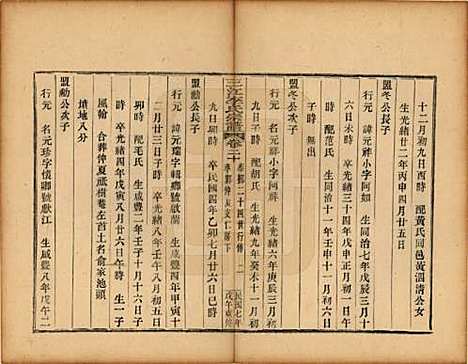 十二月初九日酉時 配黄氏同邑黄溜清公女
生光緒廿二年丙申四月廿五日
盟冬公長子
行元 諱元祥小字阿如 生同治七年戊辰三月十
六日寅時 卒光緒三十四年戊申正月初一日
時 配范氏 生同治十一年 三月初一日
子時 無出
盟冬公次子
行元 諱元祥小字阿細 生光緒六年庚辰三月初
九日子時 配胡氏 生光緒九年癸未十一月初
九日卯時 卒民國四年乙卯七月廿六日巳時
三江李氏宗譜
卷二十
民國七年
戊午重修
盟勳公長子
行元 諱元瑞字輯卿號獻蘭 生咸豐四年甲寅十
時 配毛氏 生咸豐二年壬子十二月十三日
卯時 卒光緒十八年壬午八月初五日
時 卒光緒四年戊寅八月廿六日午時 生一子
風翰 合葬仲夏蔴樹巷左首土名俞家池頭
墳地八分
盟勳公次子
行元 名元珍字懷卿號獻江 生咸豐八年戊午二